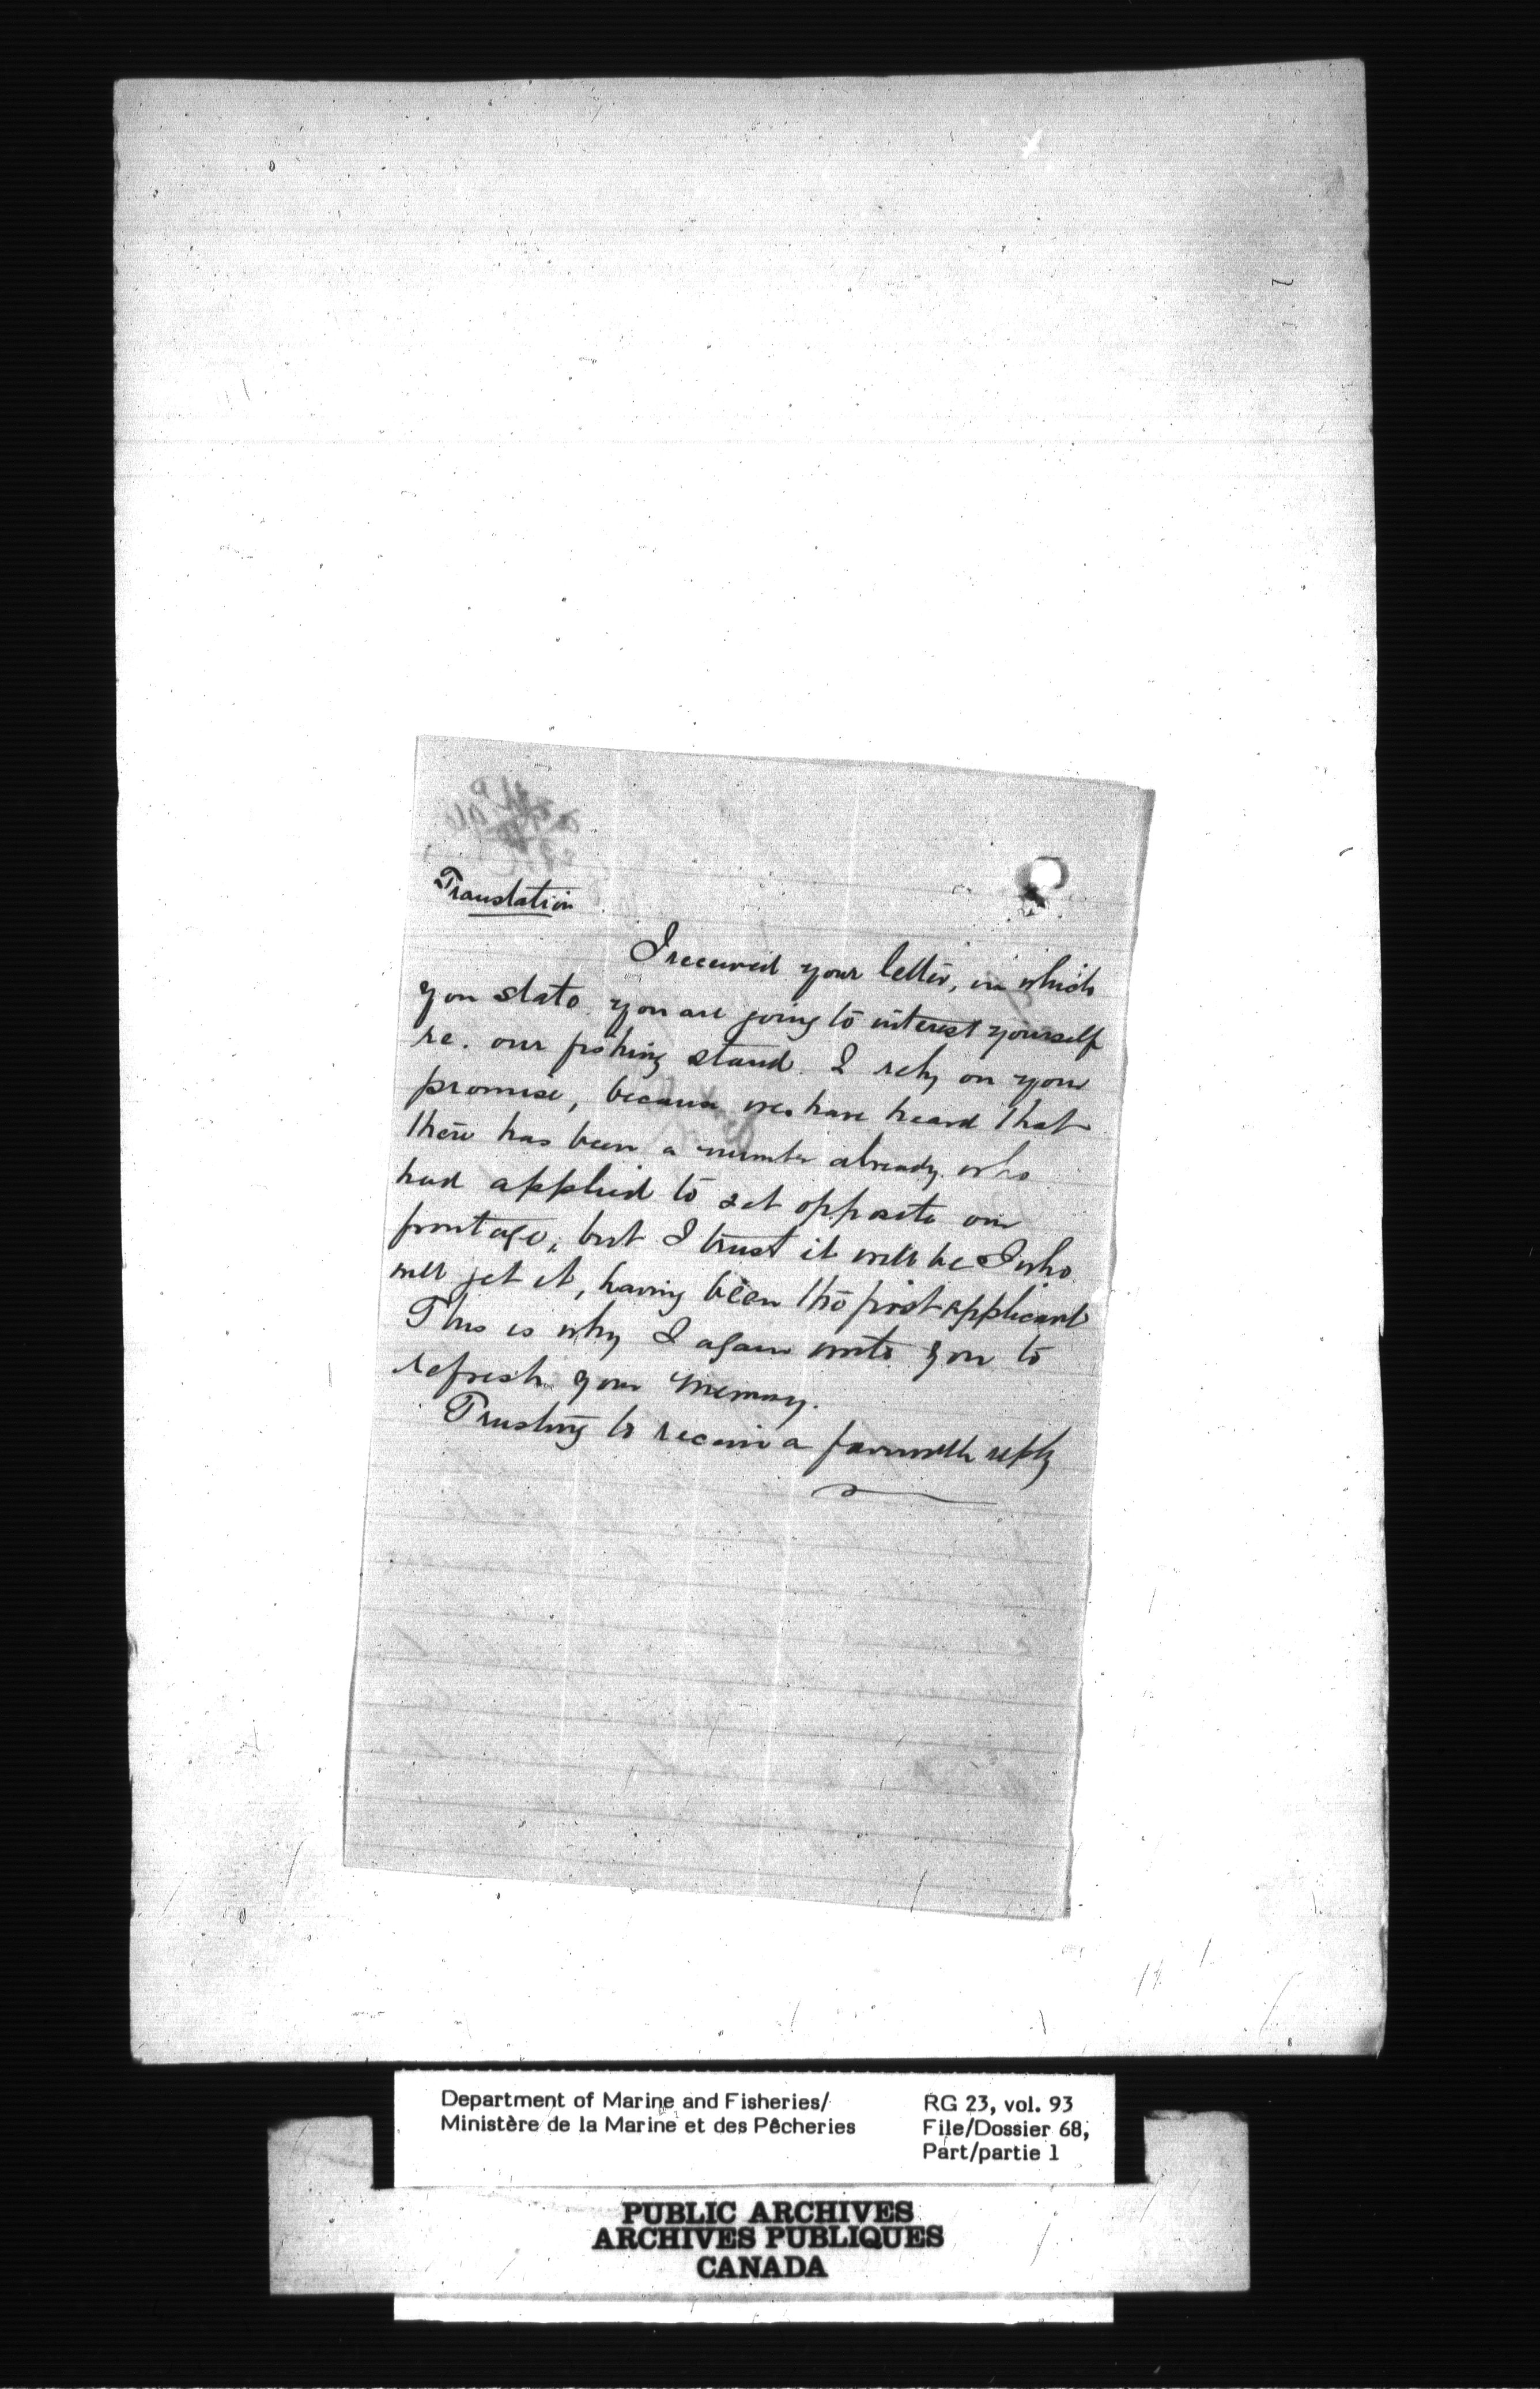 Translation
I received your letter, in which
you state you are going to interest yourself
re. our fishing stand. I rely on your
promise, because we have heard that
there has been a number already who
had applied to set opposite our
frontage, but I trust it will be I who
will get it, having been the first applicant
This is why I again write you to
refresh your memory.
Trusting to receive a favourable reply
Department of Marine and Fisheries/
Ministère de la Marine et des Pêcheries
RG 23, vol. 93
File/Dossier 68,
Part/partie 1
PUBLIC ARCHIVES
ARCHIVES PUBLIQUES
CANADA